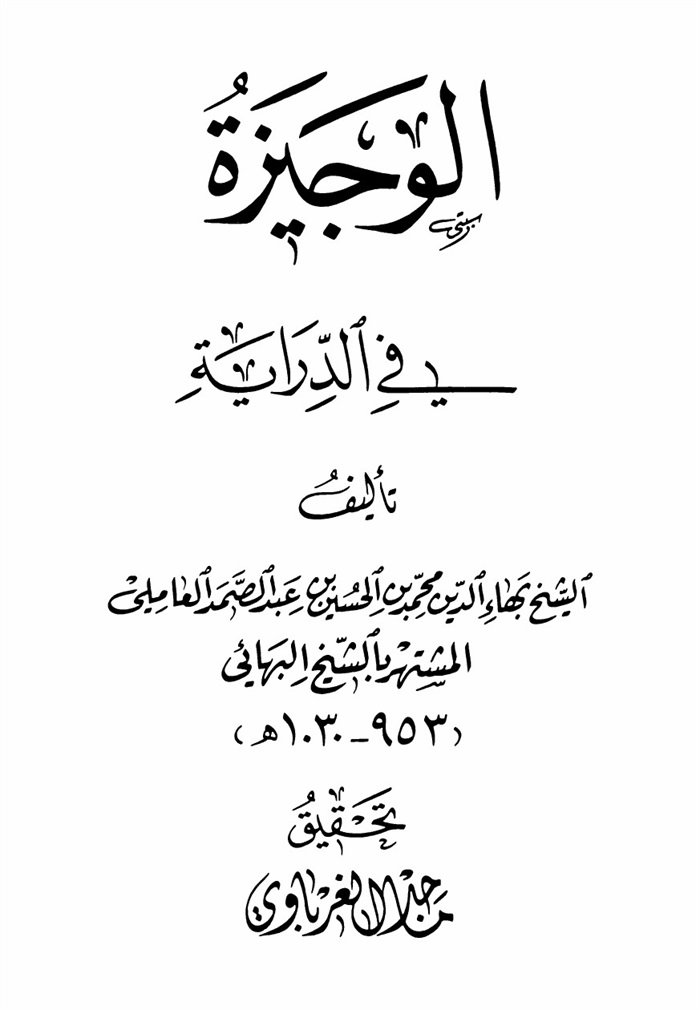 الوجيزة
في الدراية
تأليف
الشيخ بهاء الدين محمد بن الحسين بن عبد الصمد العاملي
المشتهر بالشيخ البهائي
(٩٥٣ - ١٠٣٠ هـ)
تحقيق
ماجد الغرباوي